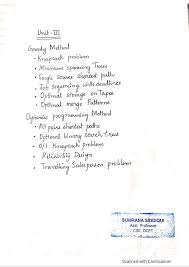 Unit-III
Greedy Method
• Knapsack problem
• Minimum spanning Trees
• Single source shortest path
• Job sequencing with deadlines
• Optimal storage on Tapes
• Optimal merge Patterns
Dynamic programming Method
• All pairs shortest paths
• Optimal binary search trees
• 0/1 Knapsack problem
• Reliability Design
• Travelling Salesperson problem
SUMRANA SIDDIQUI
Asst. Professor
CSE, DCET
Scanned with CamScanner